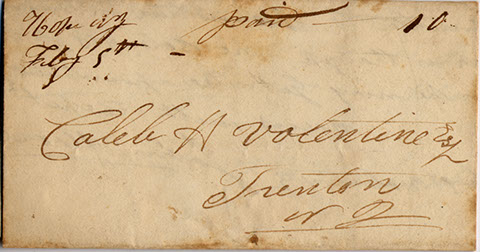 Hope NJ paid 10
Feby 5th
Caleb H Valentine Esq
Trenton
NJ